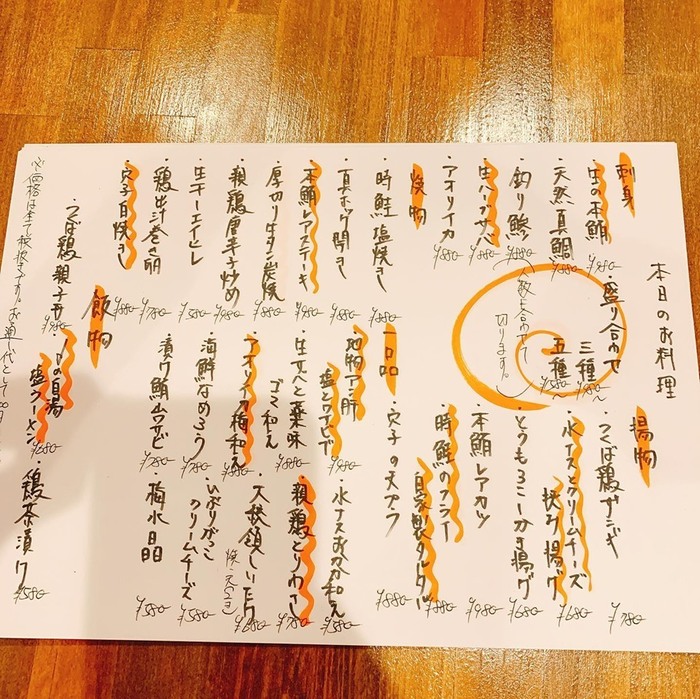 本日のお料理
刺身
・生の本鮪 ¥980-
・天然真鯛 ¥880-
・釣り鯵 ¥880-
・生ハーブサバ ¥880-
・アオリイカ ¥880-
盛り合わせ
三種 ¥980~
五種 ¥1580~
(人数に合わせて
切ります。)
焼物
・時鮭塩焼き ¥880-
・真ホッケ開き ¥880-
・本鮪レアステーキ ¥980-
・厚切り生タン炭焼 ¥880-
・親鶏唐辛子炒め ¥980-
・生干しエイヒレ ¥580-
・鶏出汁巻き卵 ¥780-
・穴子白焼き ¥880-
揚物
・つくば鶏ザンギ ¥780-
・水ナスとクリームチーズ
挟み揚げ ¥680-
・とうもろこしかき揚げ ¥680-
・本鮪レアカツ ¥980-
・時鮭のフライ
自家製タルタル ¥880-
・穴子の天プラ ¥880-
一品
・地物アン肝
塩とワサビで ¥980-
・生タコと薬味
ゴマ和え ¥880-
・アオリイカ梅和え ¥780-
・海鮮なめろう ¥780-
・漬け鮪ムサビ ¥780-
・水ナスおかか和え ¥580-
・親鶏とりわさ ¥780-
・大秋鎮しいたけ
(焼・天(2コ)) ¥680-
・いぶりがっこ
クリームチーズ ¥580-
・梅水晶 ¥580-
飯物
・つくば鶏親子丼 ¥980-
・鶏白湯
塩ラーメン ¥680-
・鶏茶漬け ¥580-
※価格は全て税抜きです。お通し代として